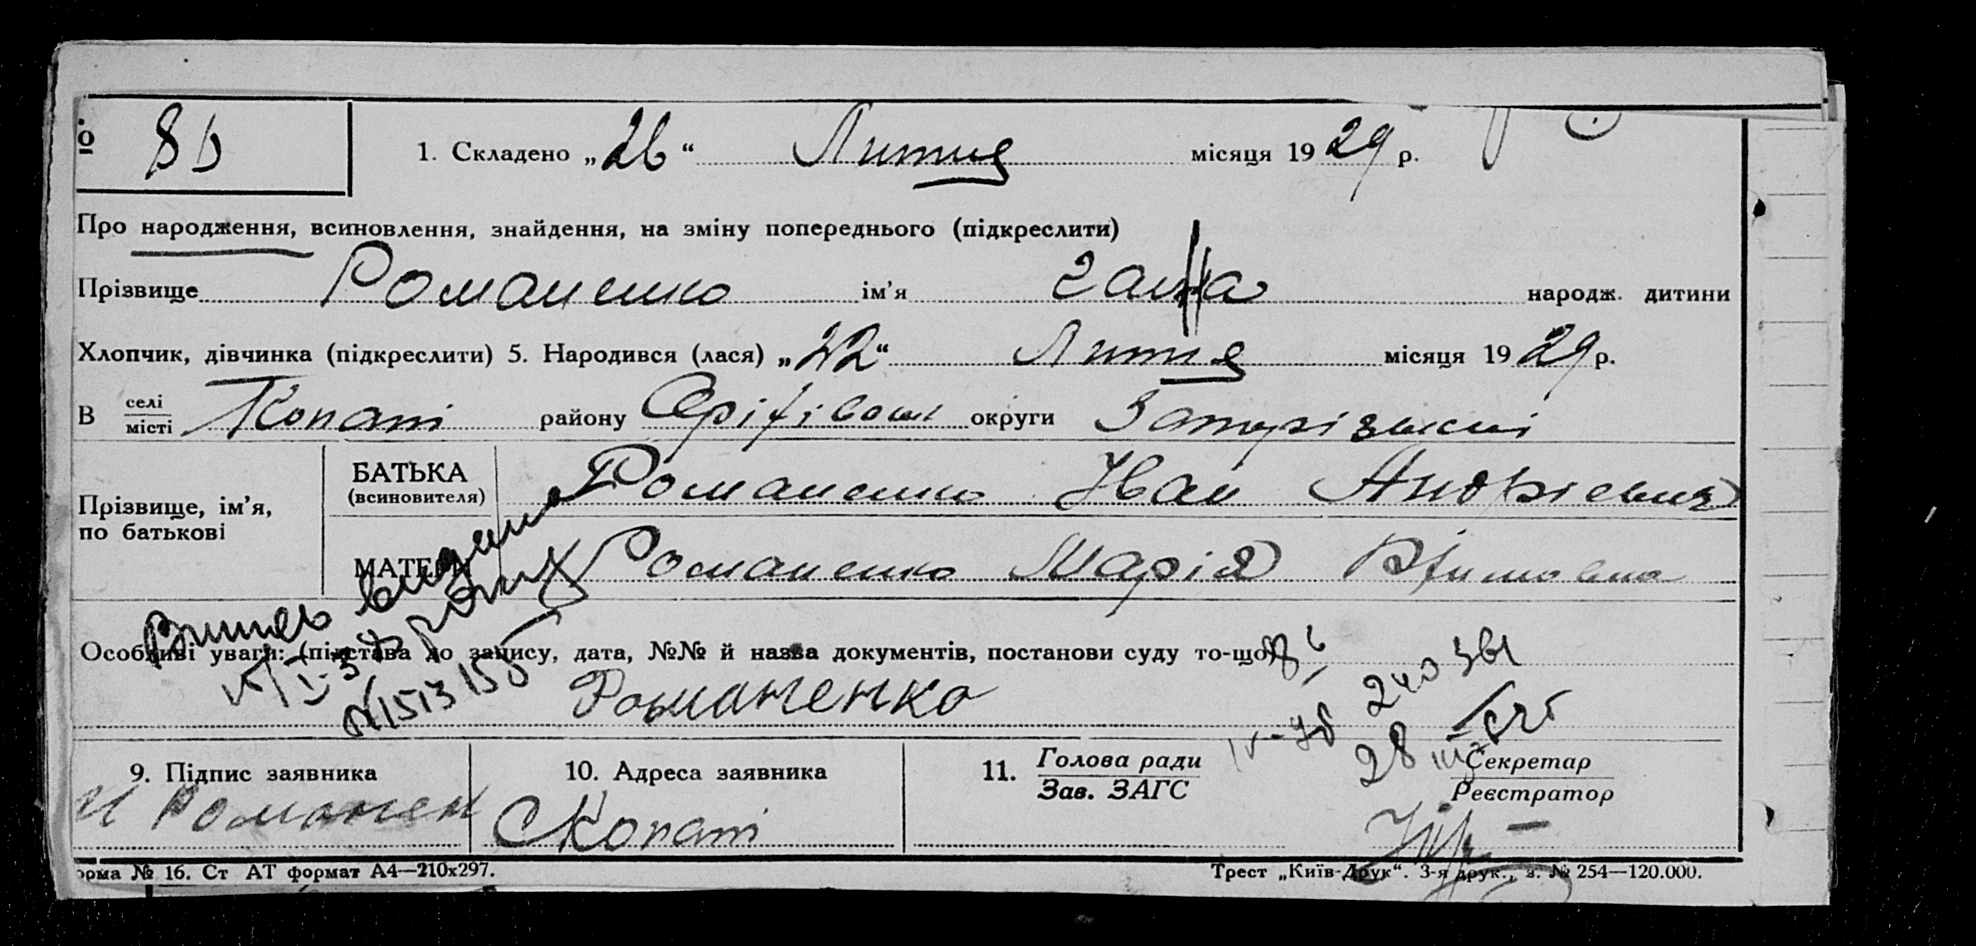 № 80 1. Складено „26“ Лютня місяця 1929 р.
Про народження, всиновлення, знайдення, на зміну попереднього (підкреслити)
Прізвище Романенко ім’я Ганна народж. дитини
Хлопчик, дівчинка (підкреслити) 5. Народився (лася) „22“ Лютня місяця 1929 р.
В селі місті Копані району Оріхівськ округи Запорізькій
Прізвище, ім’я, по батькові
БАТЬКА (всиновителя) Романенко Іван Андрієвич
МАТЕРИ Романенко Марія
Витяг видано
року
Особливі уваги: (підстава до запису, дата, №№ й назва документів, постанови суду то-що)
№1513155
Романенко
9. Підпис заявника 10. Адреса заявника 11. Голова ради Зав. ЗАГС Секретар Реєстратор
И Романен С Копані
орма № 16. Ст АТ формат А4—210х297. Трест „Київ-Друк“. 3-я друк., з. № 254—120.000.